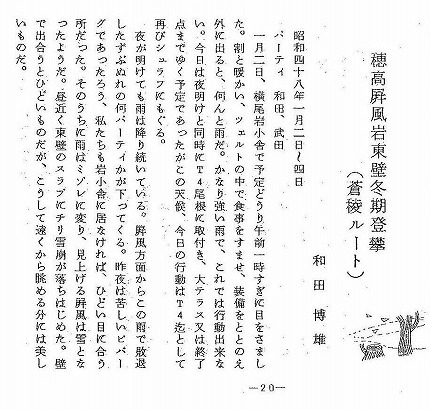 穂高屏風岩東壁冬期登攀
（蒼稜ルート）
和田 博雄
昭和四十八年一月二日～四日
パーティ 和田、武田
一月二日、横尾岩小舎で予定どうり午前一時すぎに目をさまし
た。割と暖かい、ツェルトの中で食事をすませ、装備をととのえ
外に出ると、何んと雨だ。かなり強い雨で、これでは行動出来な
い。今日は夜明けと同時にT4尾根に取付き、大テラス又は終了
点までゆく予定であったがこの天候、今日の行動はT4迄として
再びシュラフにもぐる。
夜が明けても雨は降り続いている。屏風方面からこの雨で敗退
したずぶぬれの何パーティかが下ってくる。昨夜は苦しいビバー
グであったろう、私たちも岩小舎に居なければ、ひどい目に合う
所だった。そのうちに雨はミゾレに変り、見上げる屏風は雪とな
ったようだ。昼近く東壁のスラブにチリ雪崩が落ちはじめた。壁
で出合うとひどいものだが、こうして遠くから眺める分には美し
いものだ。
—20—